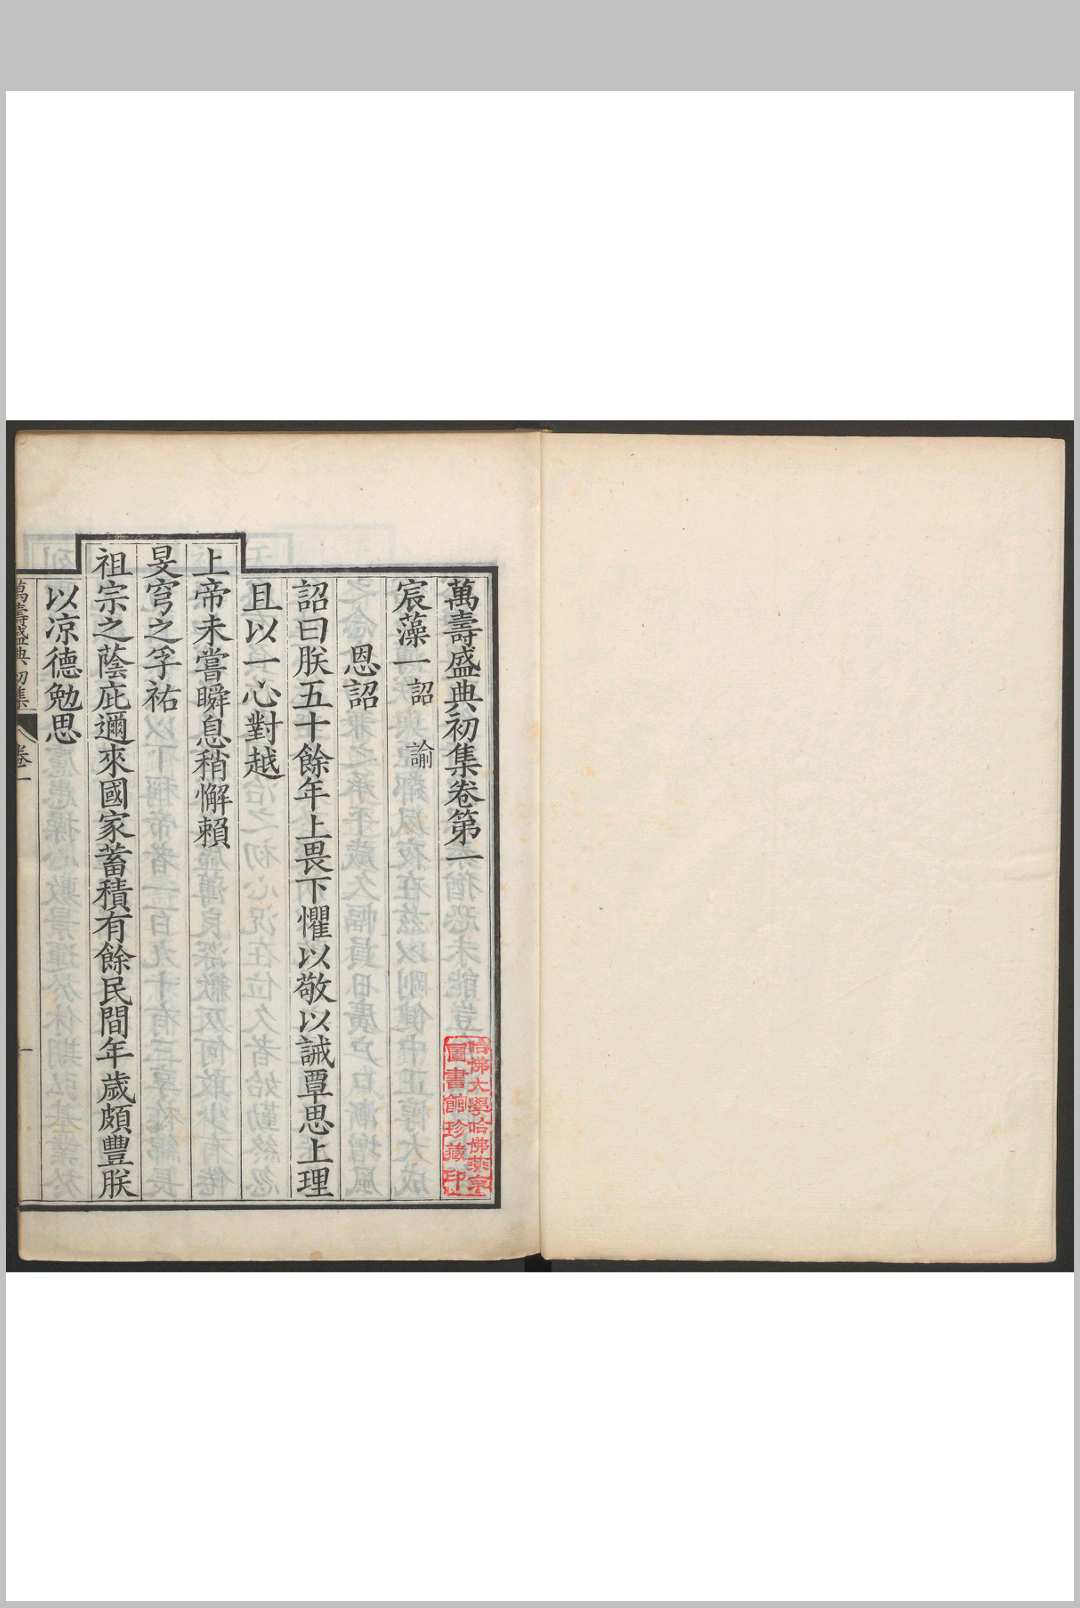 萬壽盛典初集卷第一
宸藻一 詔 諭
恩詔
詔曰朕五十餘年上畏下懼以敬以誠覃思上理
且以一心對越
上帝未嘗瞬息稍懈賴
旻穹之孚祐
祖宗之蔭庇邇來國家蓄積有餘民間年歲頗豐朕
以凉德勉思
萬壽盛典初集 卷一 一
哈佛大學哈佛燕京
圖書館珍藏印